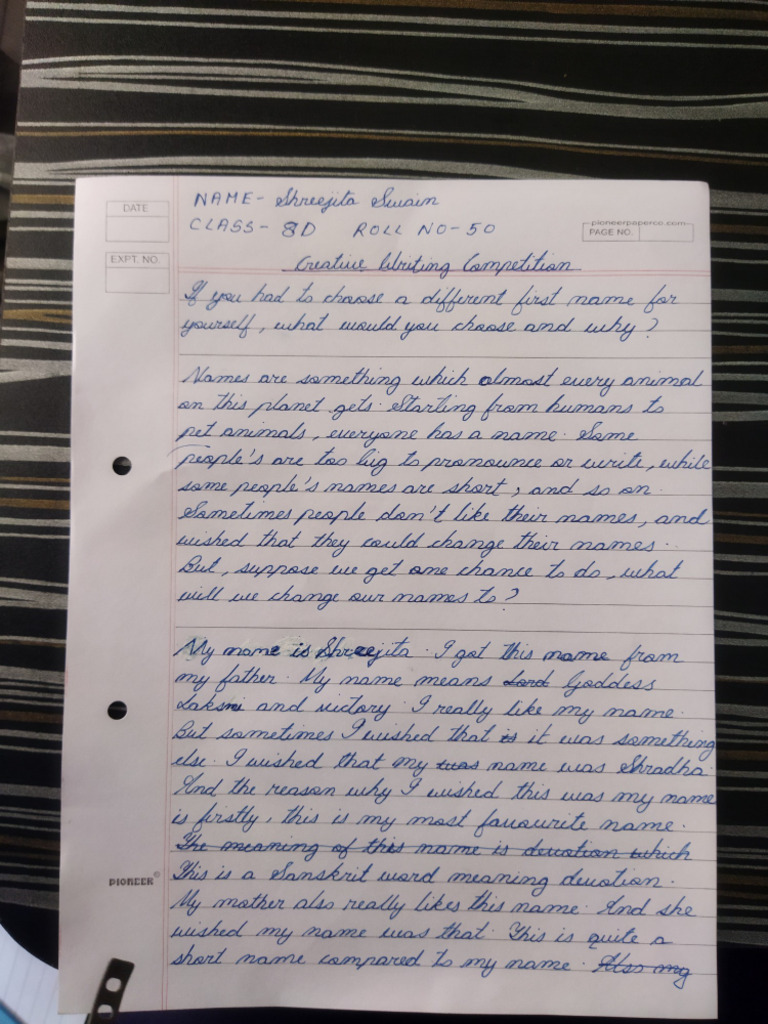 NAME- Shreejita Swain
DATE
CLASS- 8D ROLL NO-50
pioneerpaperco.com
PAGE NO.
EXPT. NO.
Creative Writing Competition
If you had to choose a different first name for
yourself, what would you choose and why?
Names are something which almost every animal
on this planet gets. Starting from humans to
pet animals, everyone has a name. Some
people's are too big to pronounce or write, while
some people's names are short, and so on.
Sometimes people don't like their names, and
wished that they could change their names.
But, suppose we get one chance to do, what
will we change our names to?
My name is Shreejita. I got this name from
my father. My name means Lord Goddess
Laksmi and victory. I really like my name.
But sometimes I wished that is it was something
else. I wished that my was name was Shradha.
And the reason why I wished this was my name
is firstly, this is my most favourite name.
The meaning of this name is devotion which
This is a Sanskrit word meaning devotion.
PIONEER
My mother also really likes this name. And she
wished my name was that. This is quite a
short name compared to my name. Also my